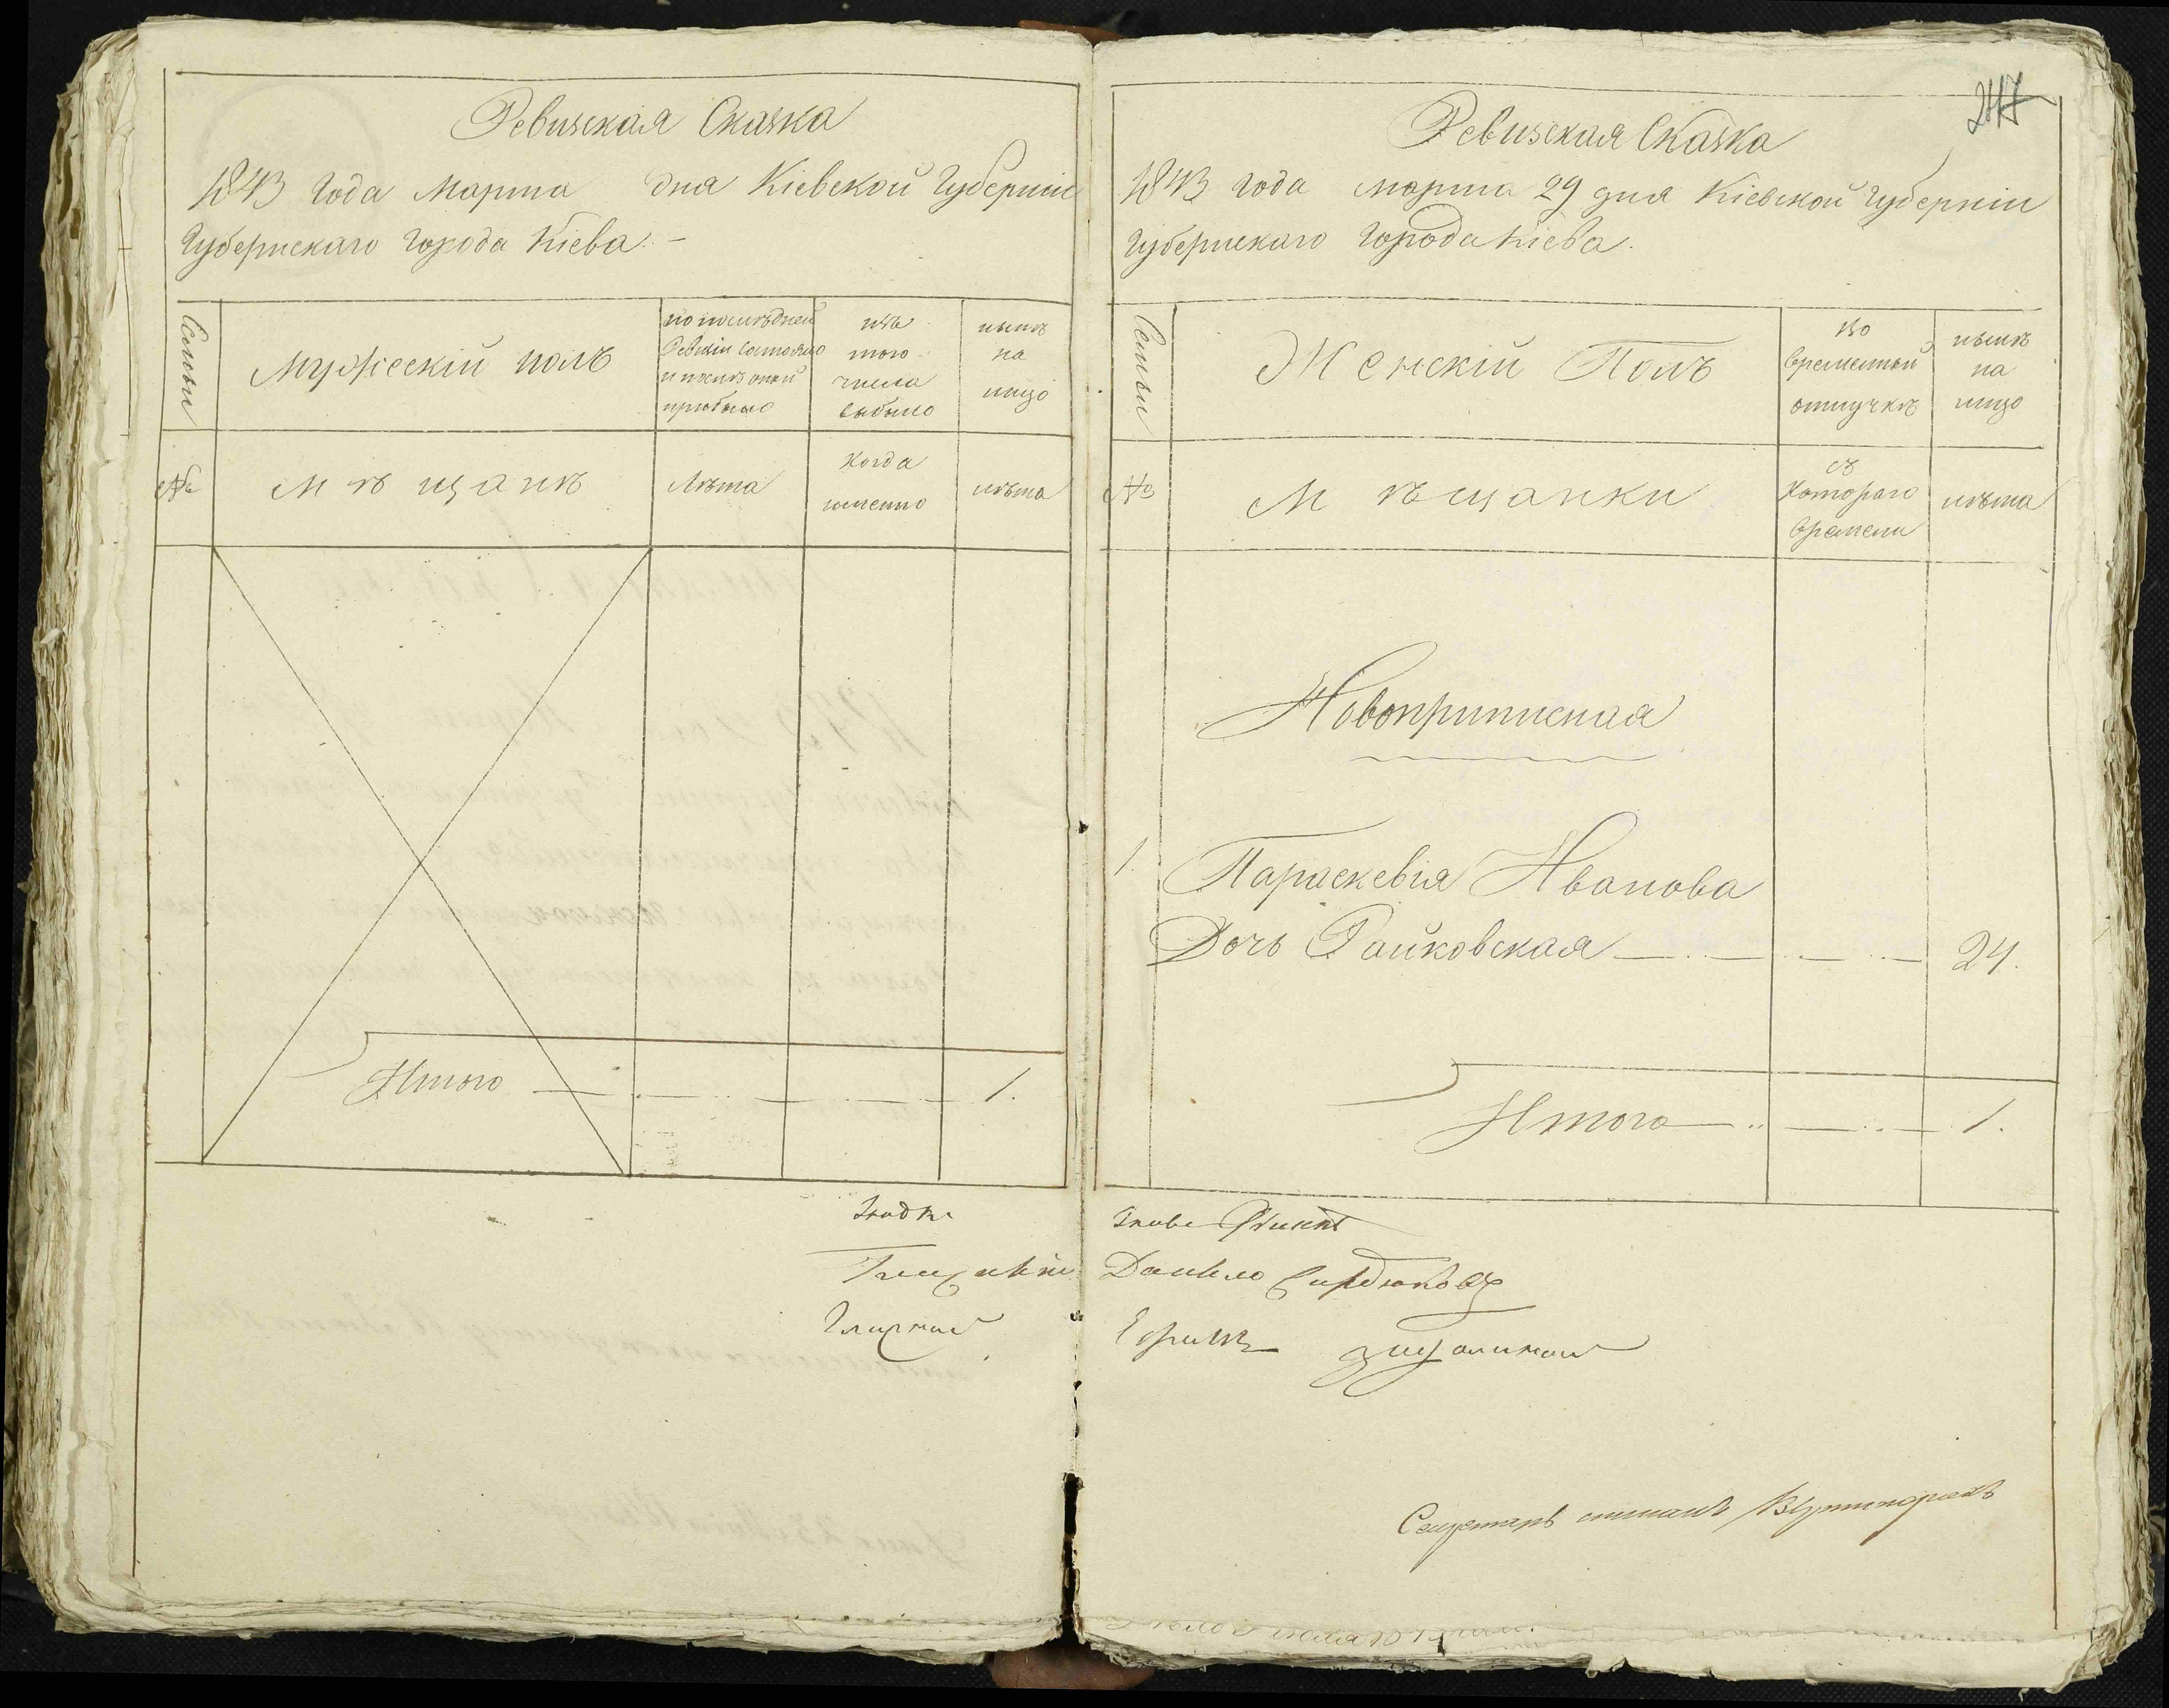 Ревизская Сказка
1843 года Марта дня Кіевской Губерніи
Губернскаго города Кіева. -
Семьи
Мужескій полъ
по послѣдней
Ревизіи состояло
и послѣ оной
прибыло
изъ
того
числа
выбыло
нынѣ
на
лицо
№
Мѣщанѣ
Лѣта
когда
именно
лѣта
Итого 1.
Градск
Гласный
217
Ревизская Сказка
1843 года марта 29 дня Кіевской Губерніи
Губернскаго города Кіева.
Семьи
Женскій Полъ
во
временной
отлучкѣ
нынѣ
на
лицо
№
Мѣщанки
съ
котораго
времени
лѣта
Новоприписная
1. Параскевія Иванова
Дочь Райковская 24.
Итого 1.
Данило Сердюковъ
Ефимъ
Секретарь